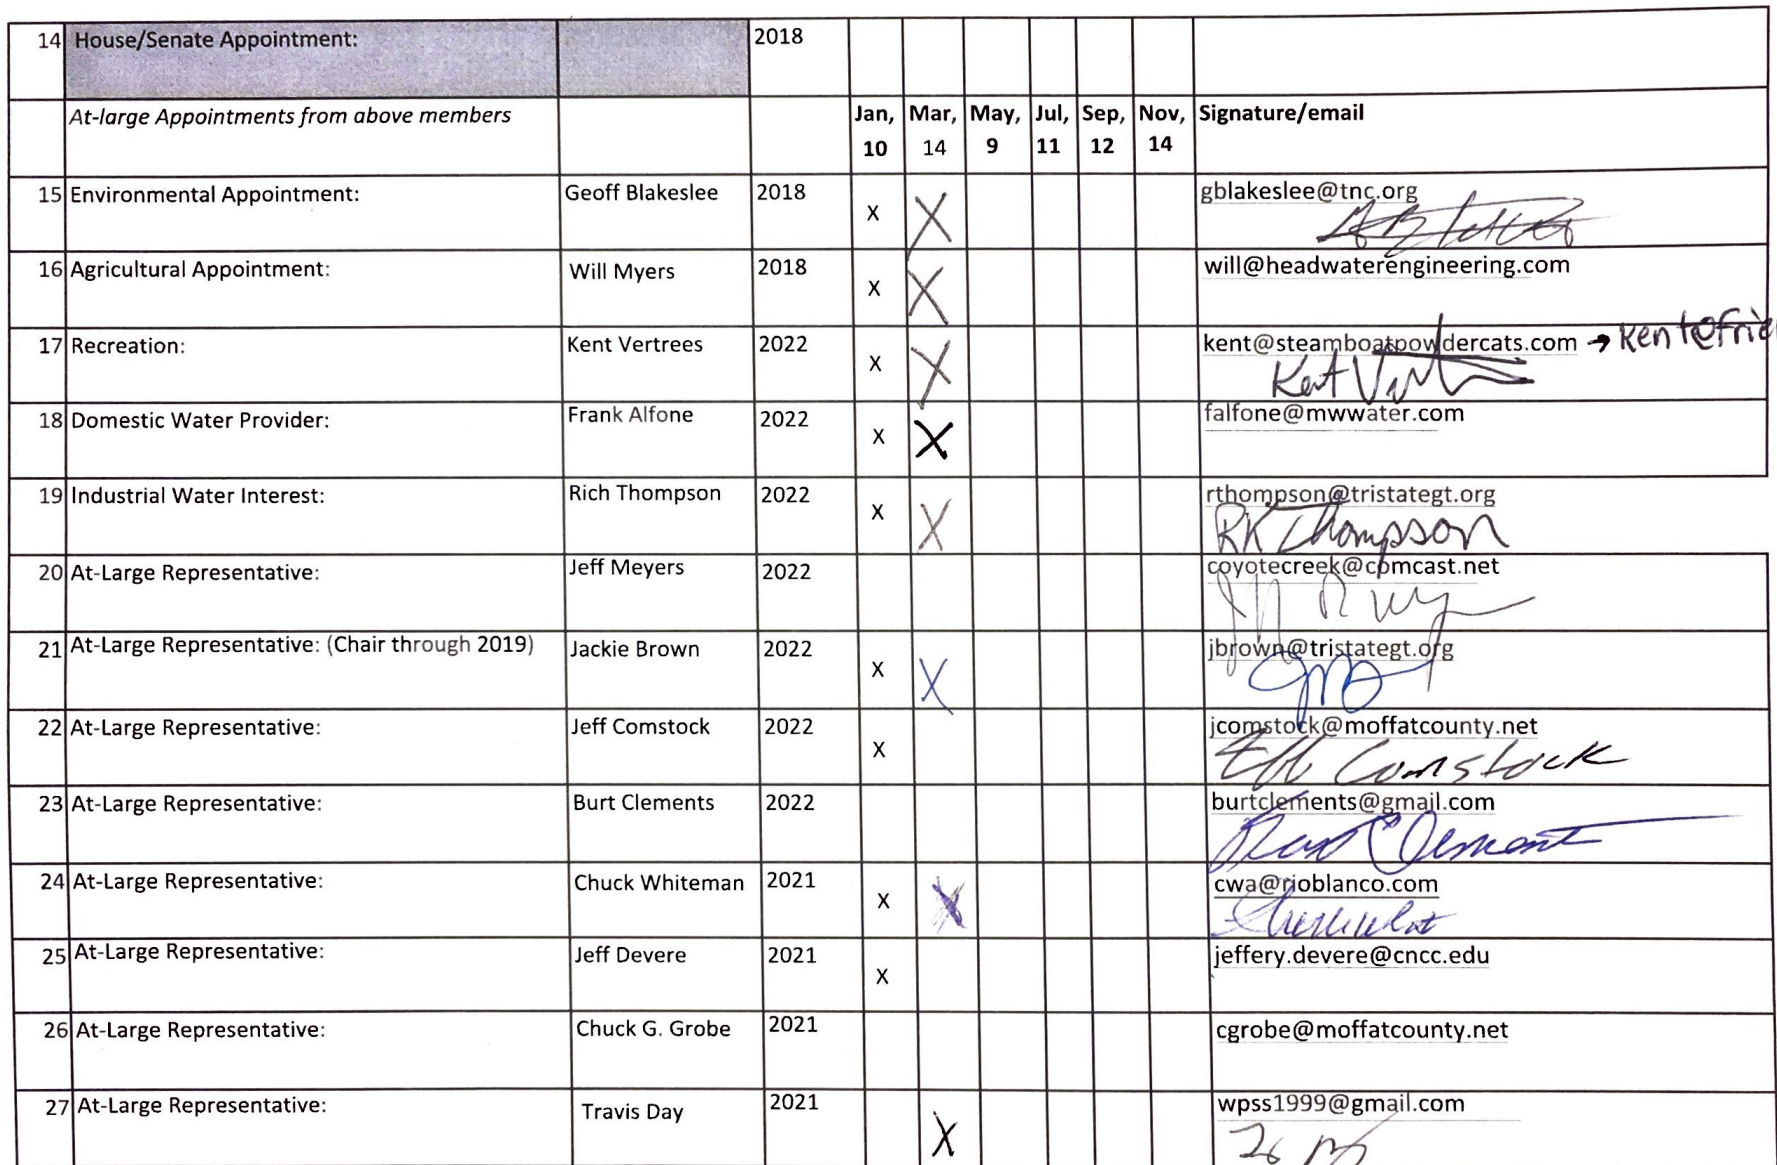 14 House/Senate Appointment: 2018
At-large Appointments from above members Jan, 10 Mar, 14 May, 9 Jul, 11 Sep, 12 Nov, 14 Signature/email
15 Environmental Appointment: Geoff Blakeslee 2018 X X gblakeslee@tnc.org
16 Agricultural Appointment: Will Myers 2018 X X will@headwaterengineering.com
17 Recreation: Kent Vertrees 2022 X X kent@steamboatpowdercats.com → Kent@frie
Kent
18 Domestic Water Provider: Frank Alfone 2022 X X falfone@mwwater.com
19 Industrial Water Interest: Rich Thompson 2022 X X rthompson@tristategt.org
RK Thompson
20 At-Large Representative: Jeff Meyers 2022 coyotecreek@comcast.net
21 At-Large Representative: (Chair through 2019) Jackie Brown 2022 X X jbrown@tristategt.org
22 At-Large Representative: Jeff Comstock 2022 X jcomstock@moffatcounty.net
Comstock
23 At-Large Representative: Burt Clements 2022 burtclements@gmail.com
24 At-Large Representative: Chuck Whiteman 2021 X X cwa@rioblanco.com
25 At-Large Representative: Jeff Devere 2021 X jeffery.devere@cncc.edu
26 At-Large Representative: Chuck G. Grobe 2021 cgrobe@moffatcounty.net
27 At-Large Representative: Travis Day 2021 X wpss1999@gmail.com